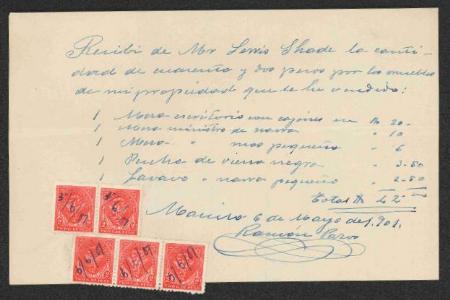 Recibi de Mr Lewis Shade la canti-
dad de cuarenta y dos pesos por los muebles
de mi propiedad que le he vendido:
1 Mesa escritorio con cajones en ₱ 20.—
1 Mesa ministro de narra " 10
1 Mesa " mas pequeña " 6
1 de viena negra " 3.50
1 Lavavo " narra pequeño " 2.50
Total ₱ 42.
Manila 6 de Mayo de 1,901.
Ramón